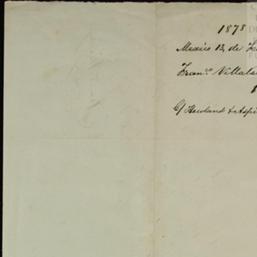 1878
Mexico 13, de
Fran.co Villala
C/ Howland & Aspi